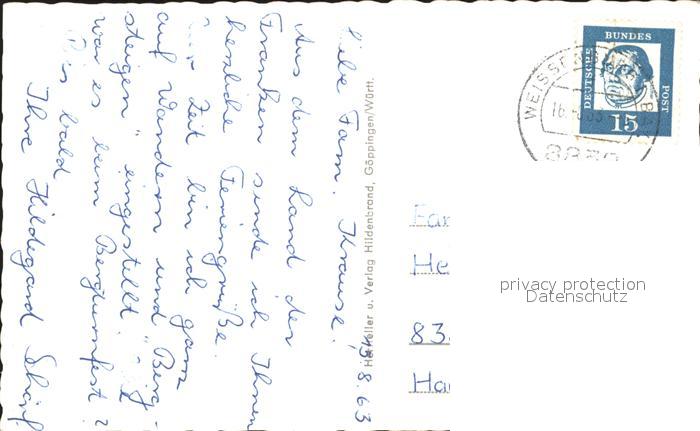 15.8.63
Liebe Fam. Krause!
Aus dem Land der
Franken sende ich Ihnen
herzliche Feriengrüße.
Zur Zeit bin ich ganz
auf Wandern und „Berg-
steigen" eingestellt.
war es beim Bergturnfest?
Bis bald
Ihre Hildegard
Hersteller u. Verlag Hildenbrand, Göppingen/Württ.
DEUTSCHE BUNDES POST
15
Fa
He
83
Ha
privacy protection
Datenschutz